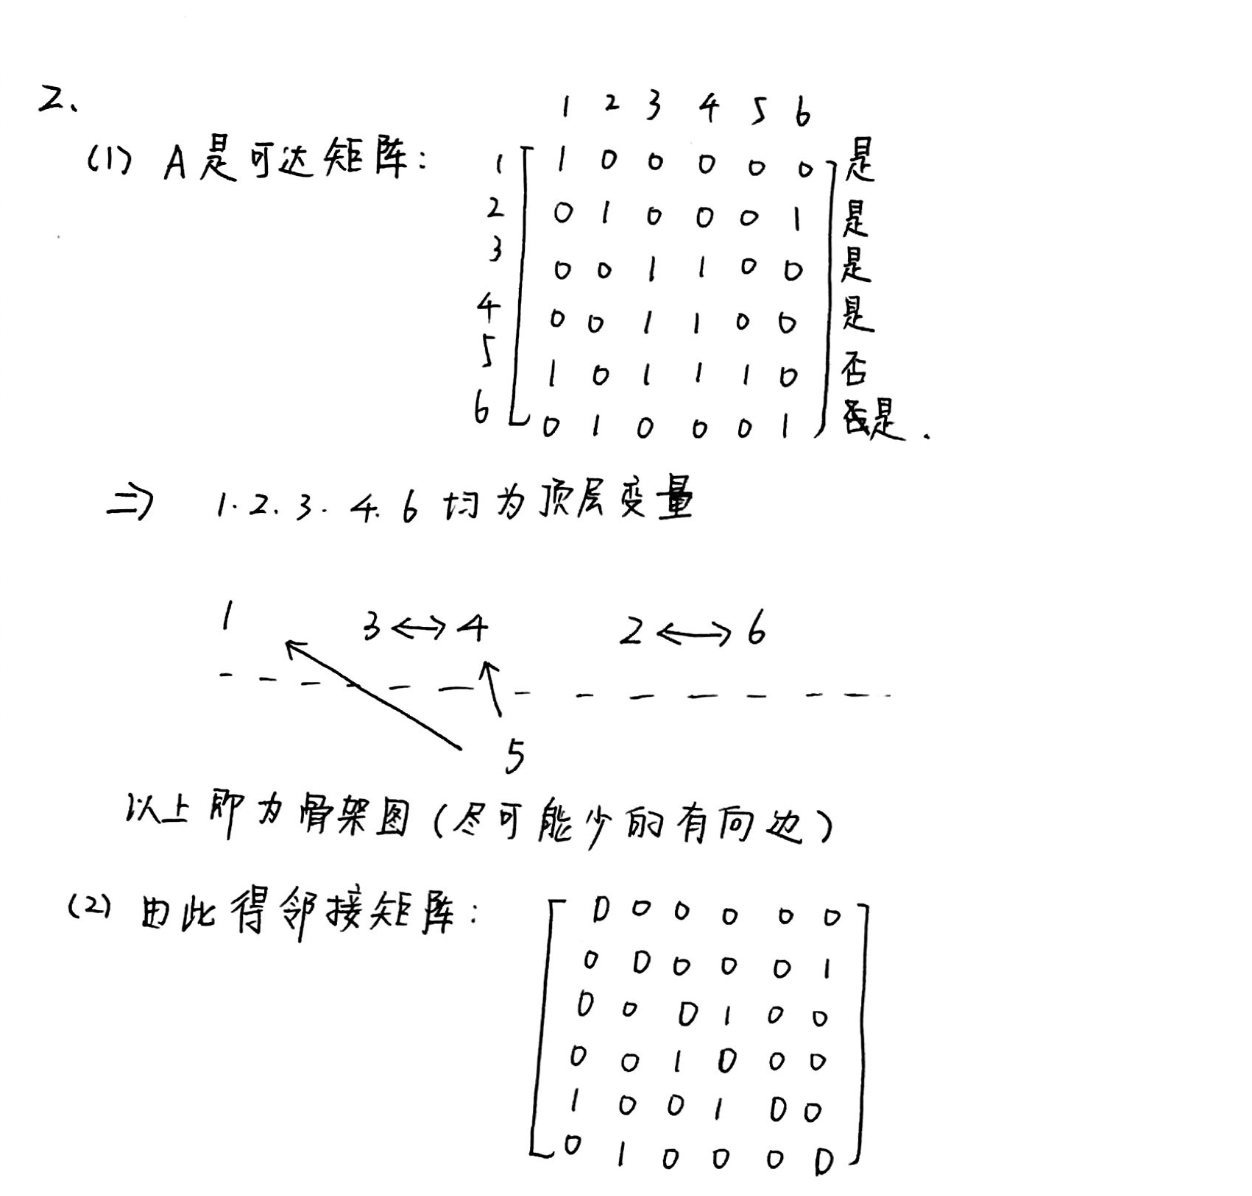 2.
1 2 3 4 5 6
(1) A是可达矩阵: 1 [ 1 0 0 0 0 0 ] 是
2 0 1 0 0 0 1 是
3 0 0 1 1 0 0 是
4 0 0 1 1 0 0 是
5 1 0 1 1 1 0 否
6 0 1 0 0 0 1 是.
⇒ 1. 2. 3. 4. 6 均为顶层变量
1 3 ↔ 4 2 ↔ 6
5
以上即为骨架图(尽可能少的有向边)
(2) 由此得邻接矩阵: [ 0 0 0 0 0 0 ]
0 0 0 0 0 1
0 0 0 1 0 0
0 0 1 0 0 0
1 0 0 1 0 0
0 1 0 0 0 0